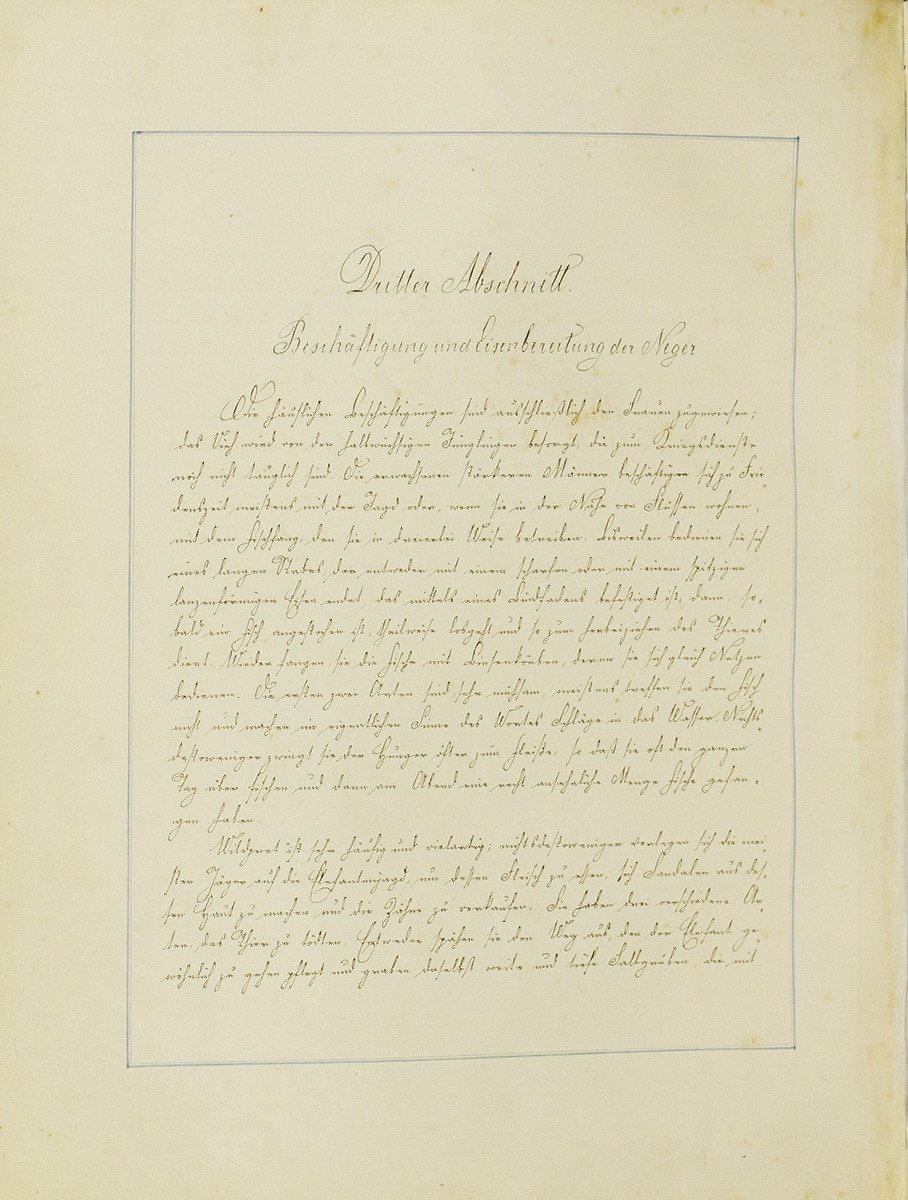 Dritter Abschnitt.
Beschäftigung und Eisenbereitung der Neger
Die häuslichen Beschäftigungen sind ausschließlich den Frauen zugewiesen;
das Vieh wird von den halbwüchsigen Jünglingen besorgt, die zum Kriegsdienste
noch nicht tauglich sind. Die erwachsenen stärkeren Männer beschäftigen sich zu Frie-
denszeit meistens mit der Jagd oder, wenn sie in der Nähe von Flüssen wohnen,
mit dem Fischfang, den sie in dreierlei Weise betreiben. Bisweilen bedienen sie sich
eines langen Stabes, der entweder mit einem scharfen oder mit einem spitzigen
lanzenförmigen Eisen endet, das mittels eines Bindfadens befestiget ist, dann, so-
bald ein Fisch angestochen ist, theilweise losgeht und so zum herbeiziehen des Thieres
dient. Wieder fangen sie die Fische mit Binsenkörben, deren sie sich gleich Netzen
bedienen. Die ersten zwei Arten sind sehr mühsam, meistens treffen sie den Fisch
nicht und machen im eigentlichen Sinne des Wortes Schläge in das Wasser. Nichts-
destoweniger zwingt sie der Hunger öfter zum Fleiße, so daß sie oft den ganzen
Tag über fischen und dann am Abend eine recht ansehnliche Menge Fische gefan-
gen haben.
Wildpret ist sehr häufig und vielartig; nichtsdestoweniger verlegen sich die mei
sten Jäger auf die Elefantenjagd, um dessen Fleisch zu essen, sich Sandalen aus des-
sen Haut zu machen und die Zähne zu verkaufen. Sie haben drei verschiedene Ar-
ten, das Thier zu tödten. Entweder spähen sie den Weg aus, den der Elefant ge-
wöhnlich zu gehen pflegt und graben daselbst weite und tiefe Fallgruben, die mit